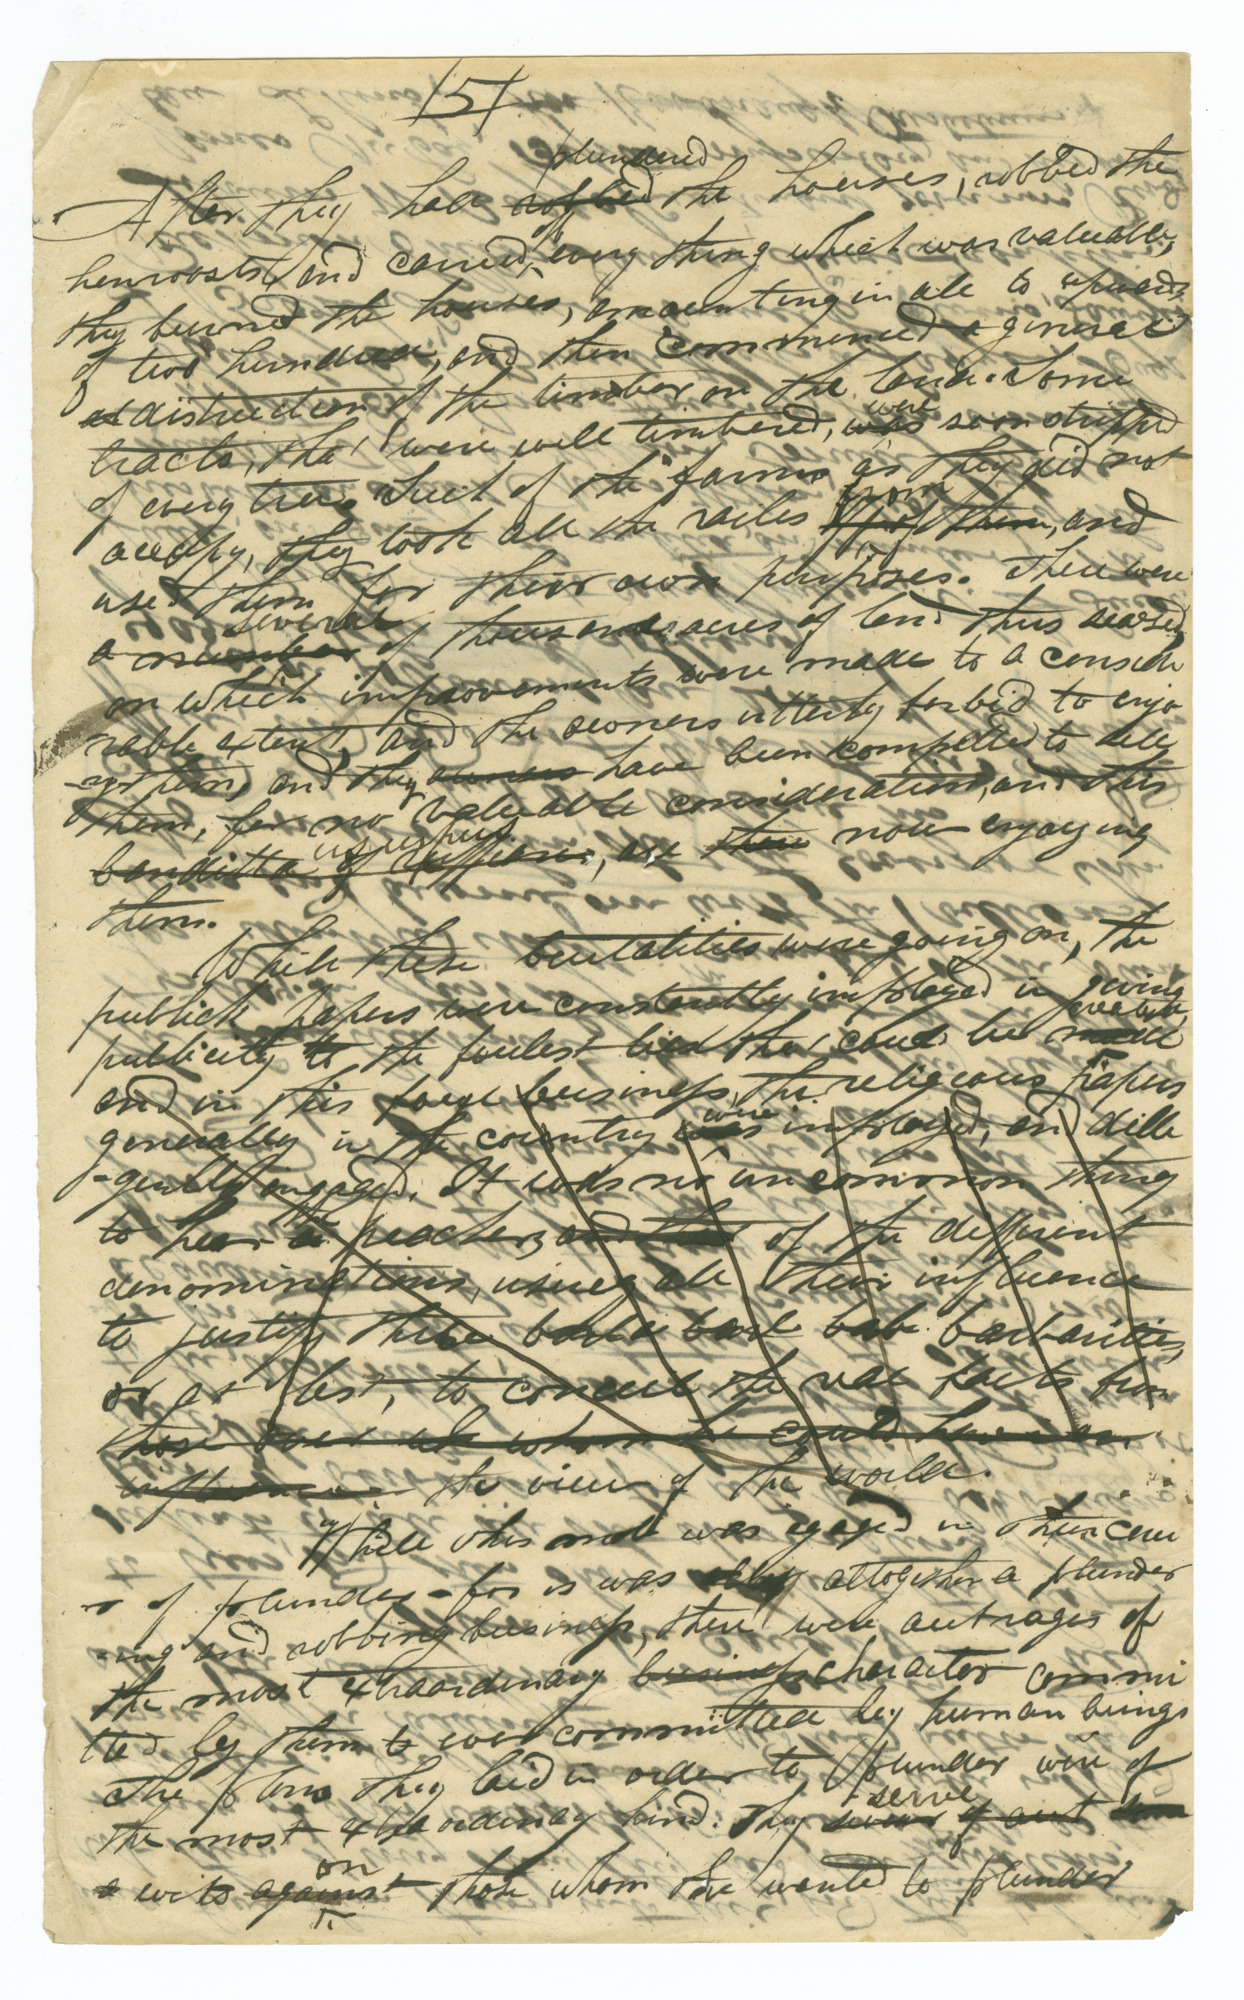 151
plundered
After they had riffled the houses, robbed the
henroosts, and carried off every thing which was valuable,
they burned the houses, amounting in all to upwards
of two hundred, and then commenced a general
distruction of the timber on the land. Some
were
tracts, that were well timbered, was soon stripped
of every tree. Such of the farms as they did not
from
occupy, they took all the railes of them, and
used them for their own purposes. There were
several
a number of thousands acres of land thus seased,
on which improvements were made to a conside
rable extent, and the owners utterly forbid to enjo
-y them, and they owners have been compelled to sell
them, for no valuable consideration, and this
usurpers
banditta of ruffians, are then now enjoying
them.
While these brutalities were going on, the
publick papers were constantly imployed in giving
create,
publicity to the foulest lies that could be made
and in this foul business, the religious papers
were
generally in the country was imployed, and dille
-gently engaged. It was no uncommon thing
the
to hear a preachers and that of the different
denominations, useing all their influence
to justify these barba bark barb barbarities,
or at lest, to conceil the real facts from
those over all whom he could have an
influence the view of the world.
While this mob was egaged in their caree
r of plunder - for is was attogether a plunder
-ing and robbing business, there were outrages of
the most extraordinary business character commi
tted by them to ever committed by human beings
The plans they laid in order to plunder were of
serve
the most extraordinary kind. They swear of out
on
writs against those whom the wanted to plunder